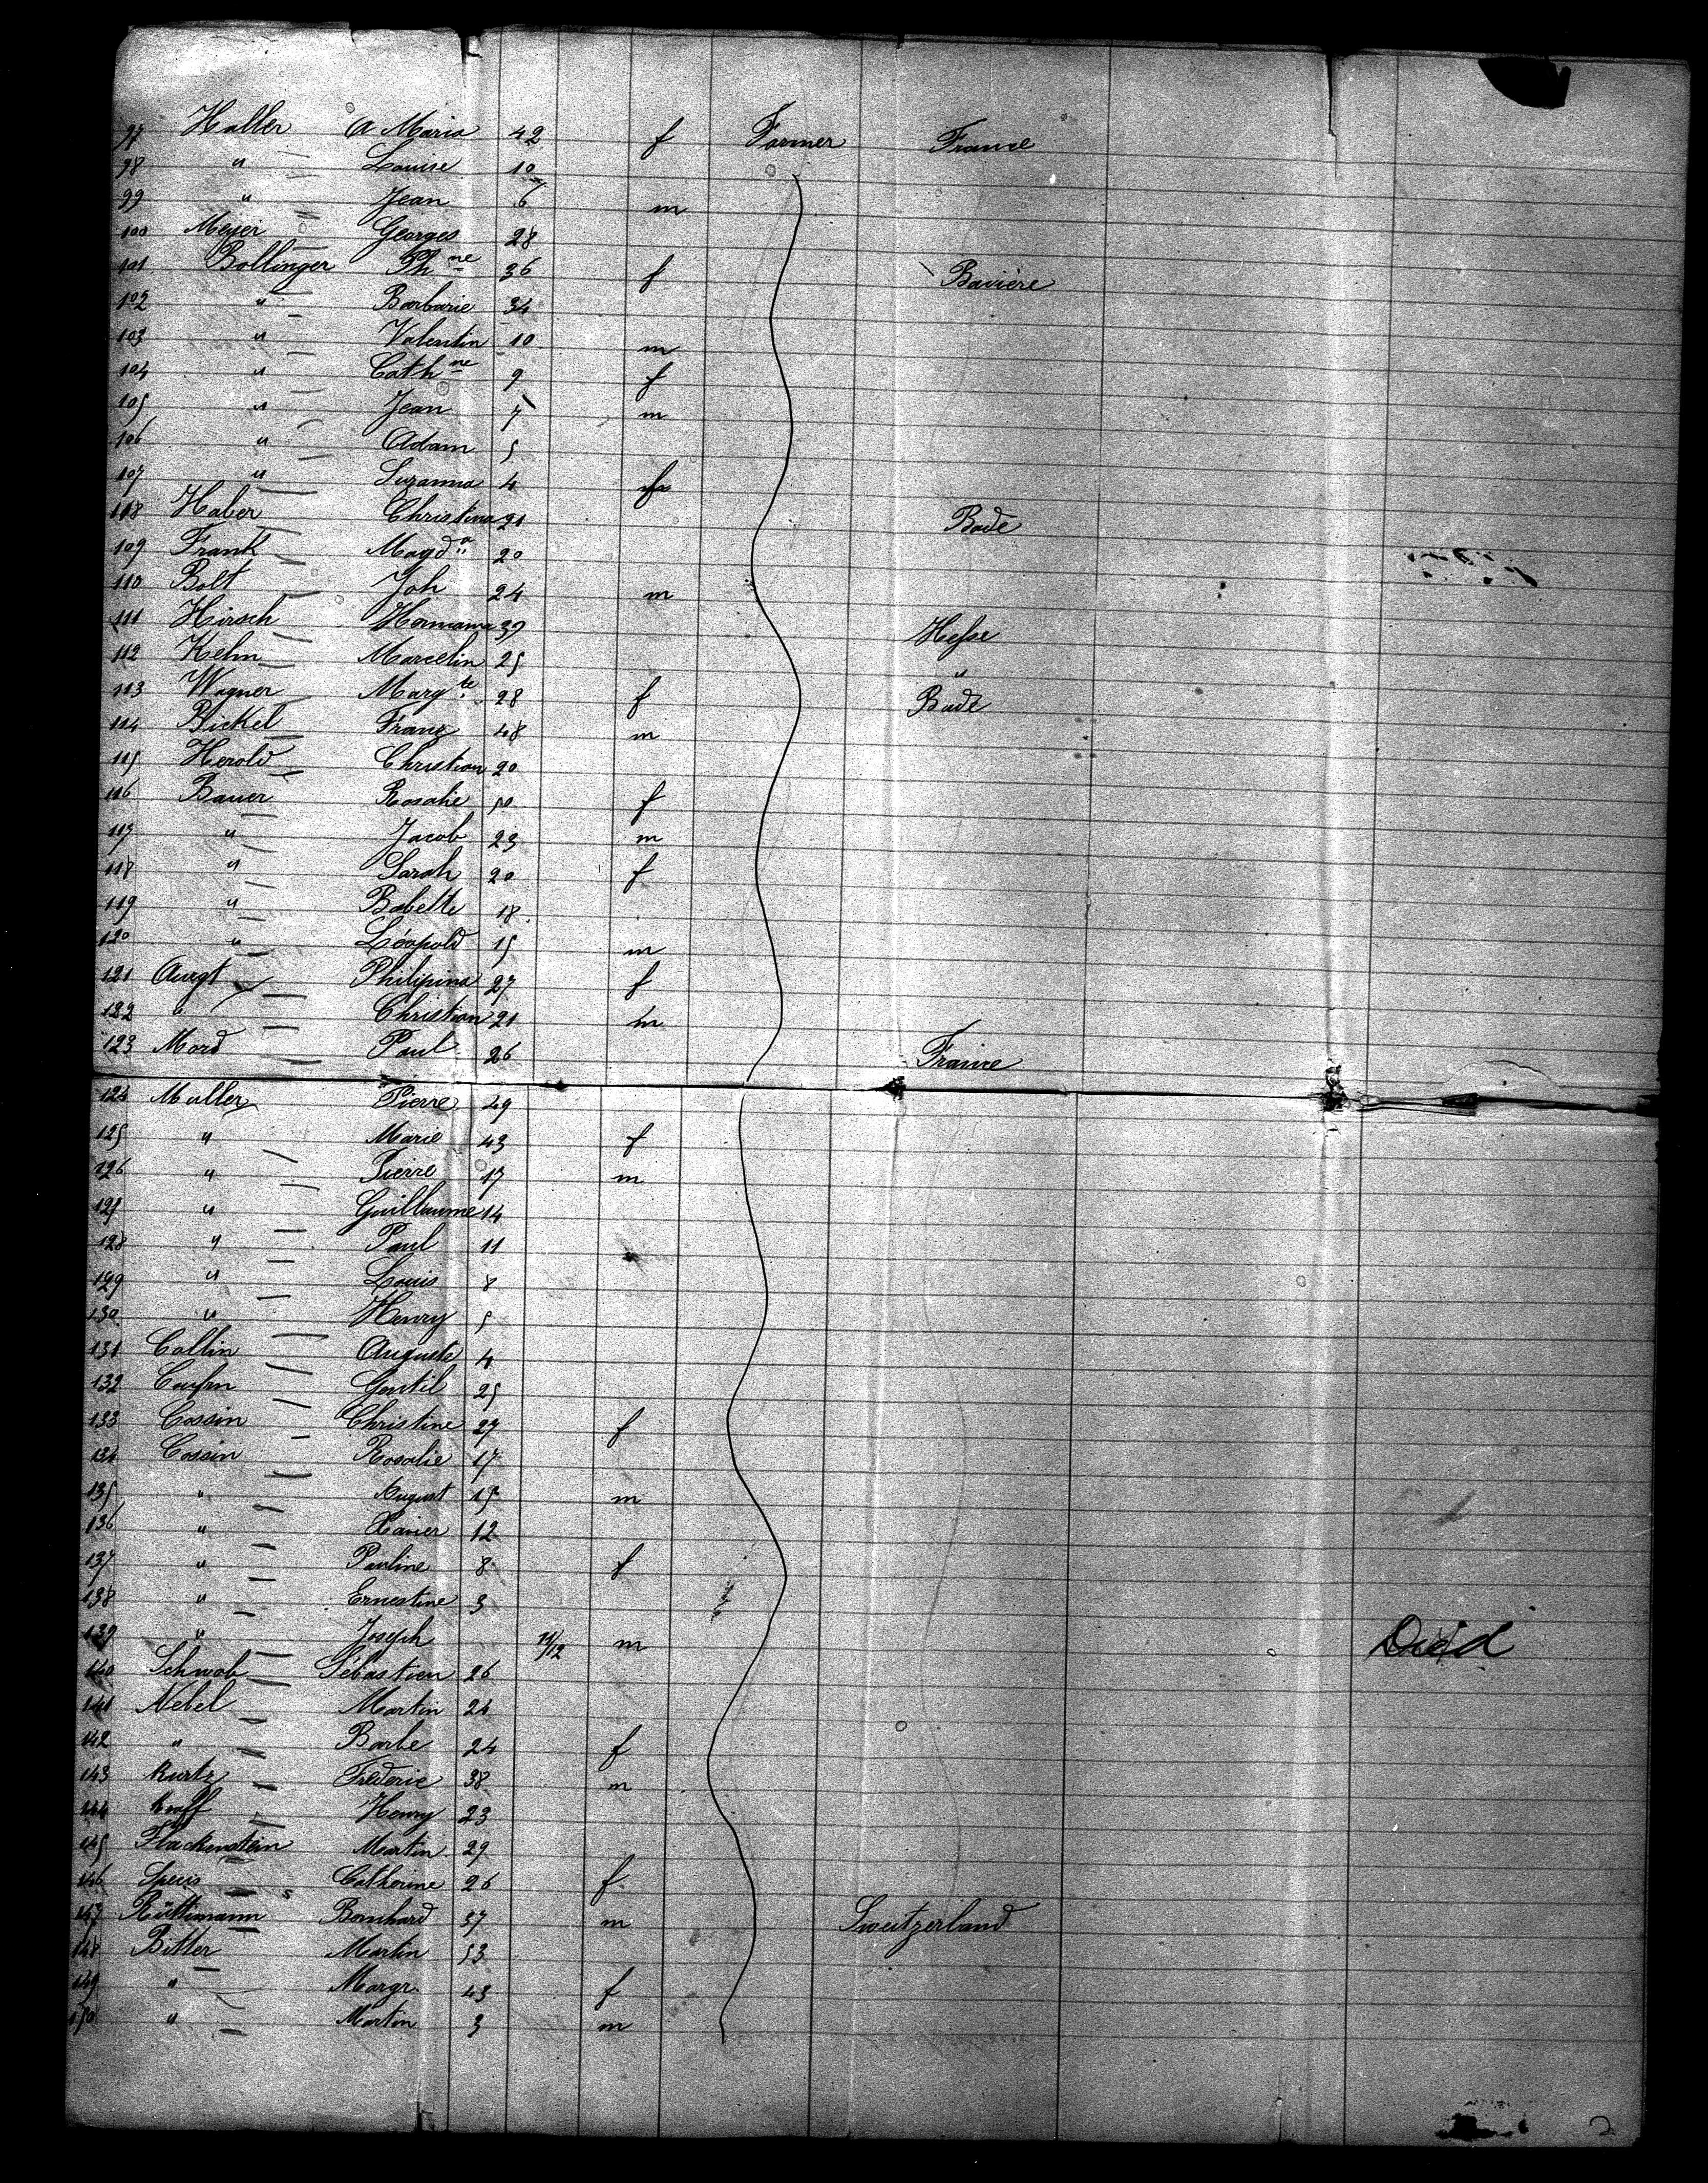 97 Haller A Maria 42 f Farmer France
98 " Louise 10
99 " Jean 6 m
100 Meyer Georges 28
101 Bollinger Phne 36 f Bavière
102 " Barbarie 34
103 " Valentin 10 m
104 " Cathne 9 f
105 " Jean 7 m
106 " Adam 5
107 " Suzanna 4
108 Haber Christina 21 Bade
109 Frank Magda 20
110 Bolt Joh 24 m
111 Hirsch Hermann 39 Hesse
112 Kehn Marcelin 25 "
113 Wagner Margte 28 f Bade
114 Bickel Franz 48 m
115 Herold Christian 20
116 Bauer Rosalie 50 f
117 " Jacob 23 m
118 " Sarah 20 f
119 " Babette 18
120 " Léopold 15 m
121 Philipina 27 f
122 Christian 21 m
123 Mord Paul 26 France
124 Muller Pierre 49
125 " Marie 43 f
126 " Pierre 17 m
127 " Guillaume 14
128 " Paul 11
129 " Louis 8
130 " Henry 5
131 Collin Auguste 4
132 Gentil 25
133 Cossin Christine 27 f
134 Cossin Rosalie 17
135 " August 15 m
136 " Xavier 12
137 " Pauline 8 f
138 " Ernestine 3
139 " Joseph 11/12 m Died
140 Schwob Sébastien 26
141 Nebel Martin 26
142 " Barbe 24 f
143 Kurtz Fréderic 38 m
144 Kraff Henry 23
145 Flackenstein Martin 29
146 Speis Catherine 26 f
147 Rüttimann Bernhard 37 m Sweitzerland
148 Bitter Martin 53
149 " Margr. 43 f
150 " Martin 3 m
2